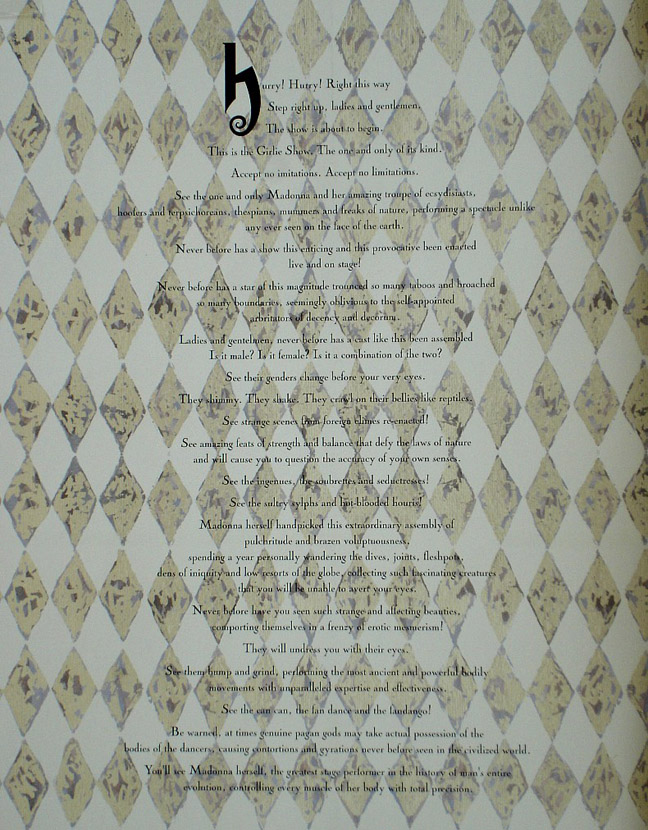 hurry! Hurry! Right this way
Step right up, ladies and gentlemen.
The show is about to begin.
This is the Girlie Show. The one and only of its kind.
Accept no imitations. Accept no limitations.
See the one and only Madonna and her amazing troupe of ecsydisiasts,
hoofers and terpsichoreans, thespians, mummers and freaks of nature, performing a spectacle unlike
any ever seen on the face of the earth.
Never before has a show this enticing and this provocative been enacted
live and on stage!
Never before has a star of this magnitude trounced so many taboos and broached
so many boundaries, seemingly oblivious to the self-appointed
arbritators of decency and decorum.
Ladies and gentelmen, never before has a cast like this been assembled
Is it male? Is it female? Is it a combination of the two?
See their genders change before your very eyes.
They shimmy. They shake. They crawl on their bellies like reptiles.
See strange scenes from foreign climes re-enacted!
See amazing feats of strength and balance that defy the laws of nature
and will cause you to question the accuracy of your own senses.
See the ingenues, the soubrettes and seductresses!
See the sultry sylphs and hot-blooded houris!
Madonna herself handpicked this extraordinary assembly of
pulchritude and brazen voluptuousness,
spending a year personally wandering the dives, joints, fleshpots,
dens of iniquity and low resorts of the globe, collecting such fascinating creatures
that you will be unable to avert your eyes.
Never before have you seen such strange and affecting beauties,
comporting themselves in a frenzy of erotic mesmerism!
They will undress you with their eyes.
See them bump and grind, performing the most ancient and powerful bodily
movements with unparalleled expertise and effectiveness.
See the can can, the fan dance and the fandango!
Be warned, at times genuine pagan gods may take actual possession of the
bodies of the dancers, causing contortions and gyrations never before seen in the civilized world.
You'll see Madonna herself, the greatest stage performer in the history of man's entire
evolution, controlling every muscle of her body with total precision.